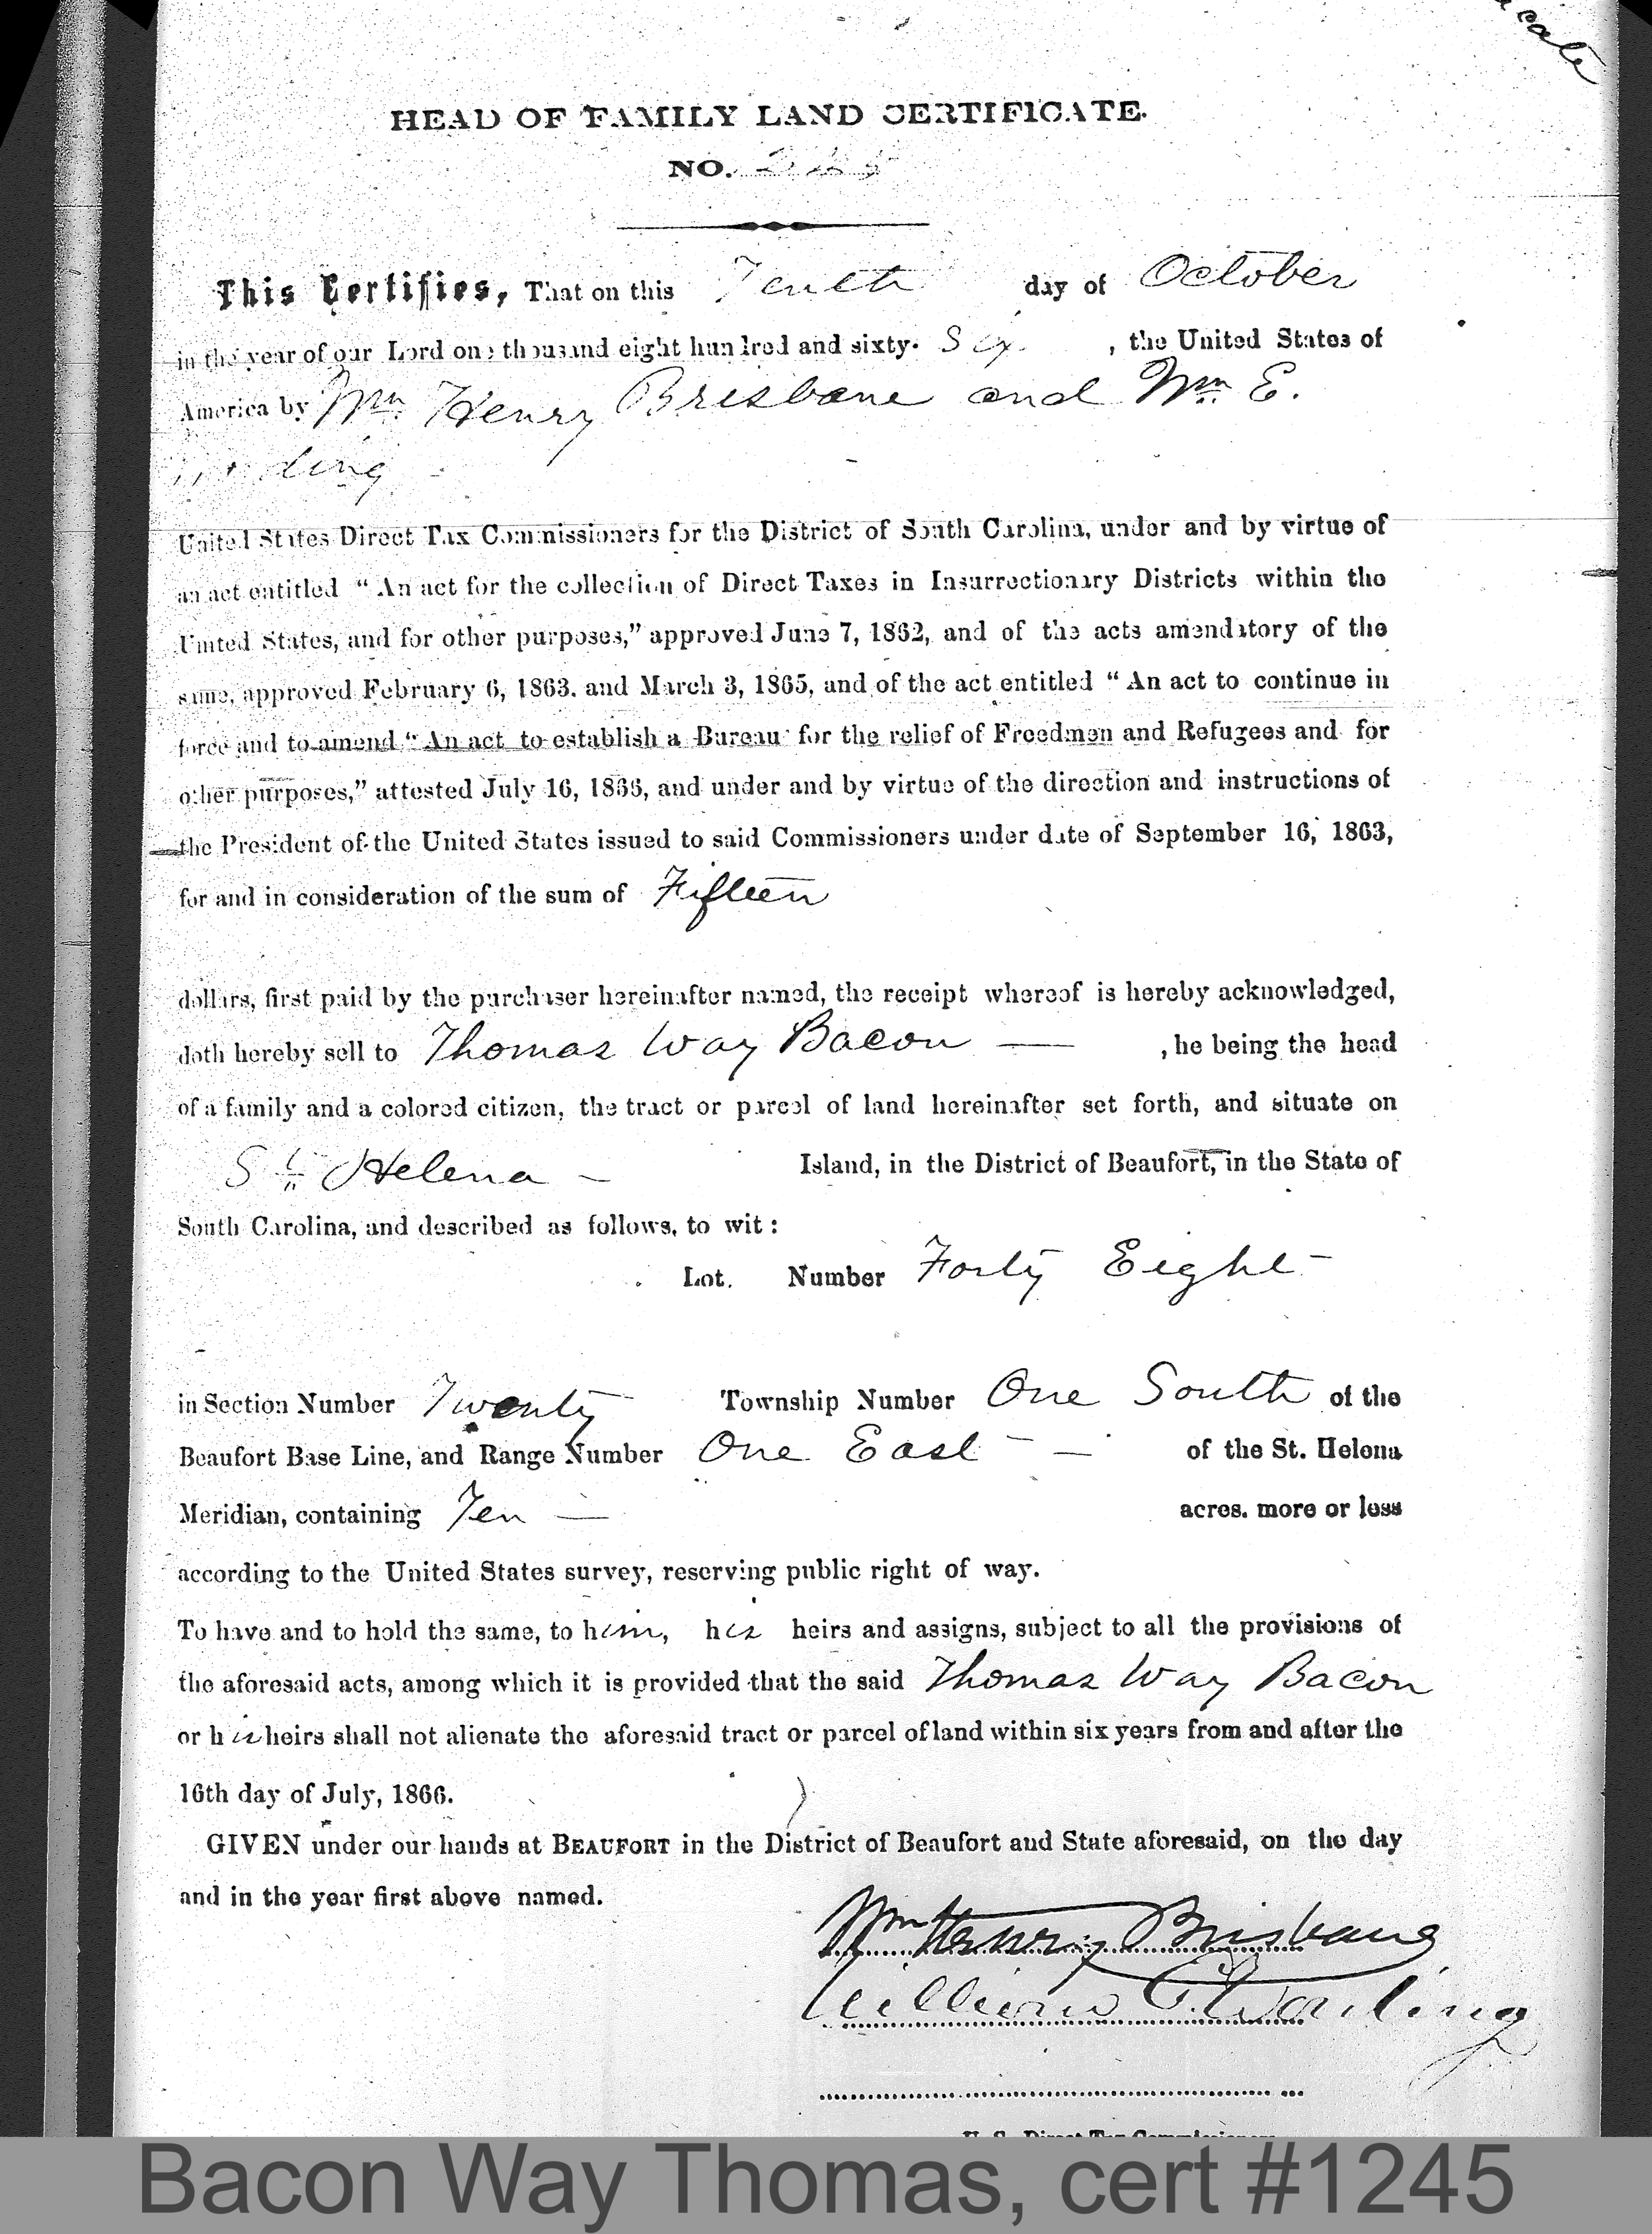 HEAD OF FAMILY LAND CERTIFICATE.
NO.
This Certifies, That on this Tenth day of October
in the year of our Lord one thousand eight hundred and sixty- Six. , the United States of
America by Wm. Henry Brisbane and Wm. E.
United States Direct Tax Commissioners for the District of South Carolina, under and by virtue of
an act entitled "An act for the collection of Direct Taxes in Insurrectionary Districts within the
United States, and for other purposes," approved June 7, 1862, and of the acts amendatory of the
same, approved February 6, 1863. and March 3, 1865, and of the act entitled "An act to continue in
force and to amend "An act to establish a Bureau for the relief of Freedmen and Refugees and for
other purposes," attested July 16, 1866, and under and by virtue of the direction and instructions of
the President of the United States issued to said Commissioners under date of September 16, 1863,
for and in consideration of the sum of Fifteen
dollars, first paid by the purchaser hereinafter named, the receipt whereof is hereby acknowledged,
doth hereby sell to Thomas Way Bacon — , he being the head
of a family and a colored citizen, the tract or parcel of land hereinafter set forth, and situate on
St. Helena - Island, in the District of Beaufort, in the State of
South Carolina, and described as follows, to wit:
Lot. Number Forty Eight -
in Section Number Twenty Township Number One South of the
Beaufort Base Line, and Range Number One East - — of the St. Helena
Meridian, containing Ten — acres. more or less
according to the United States survey, reserving public right of way.
To have and to hold the same, to him, his heirs and assigns, subject to all the provisions of
the aforesaid acts, among which it is provided that the said Thomas Way Bacon
or his heirs shall not alienate the aforesaid tract or parcel of land within six years from and after the
16th day of July, 1866.
GIVEN under our hands at BEAUFORT in the District of Beaufort and State aforesaid, on the day
and in the year first above named.
Wm Henry Brisbane
William E. Wording
U. S. Direct Tax Commissioners
Bacon Way Thomas, cert #1245